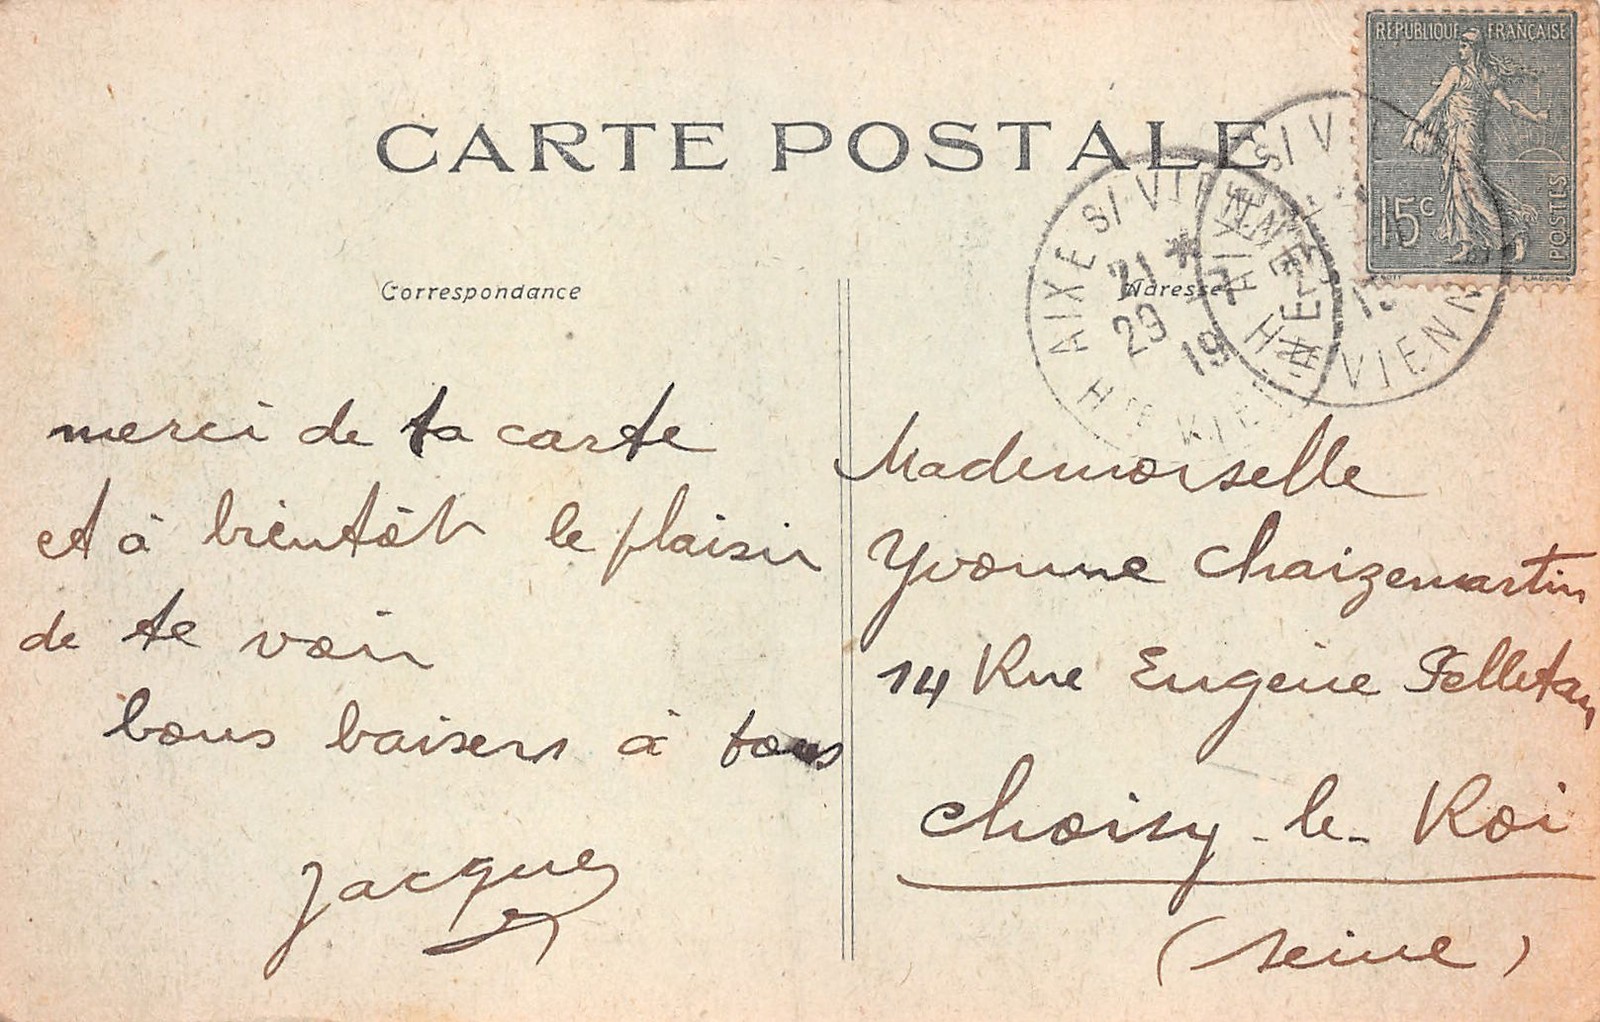 CARTE POSTALE
RÉPUBLIQUE FRANÇAISE
15c
POSTES
AIXE S/ VIENNE
21 *
29 7
19
HTE VIENNE
Correspondance
Adresse
merci de ta carte
et à bientôt le plaisir
de te voir
bons baisers à tous
Jacques
Mademoiselle
Yvonne Chaizemartin
14 Rue Eugène Pelletan
Choisy-le-Roi
(Seine)